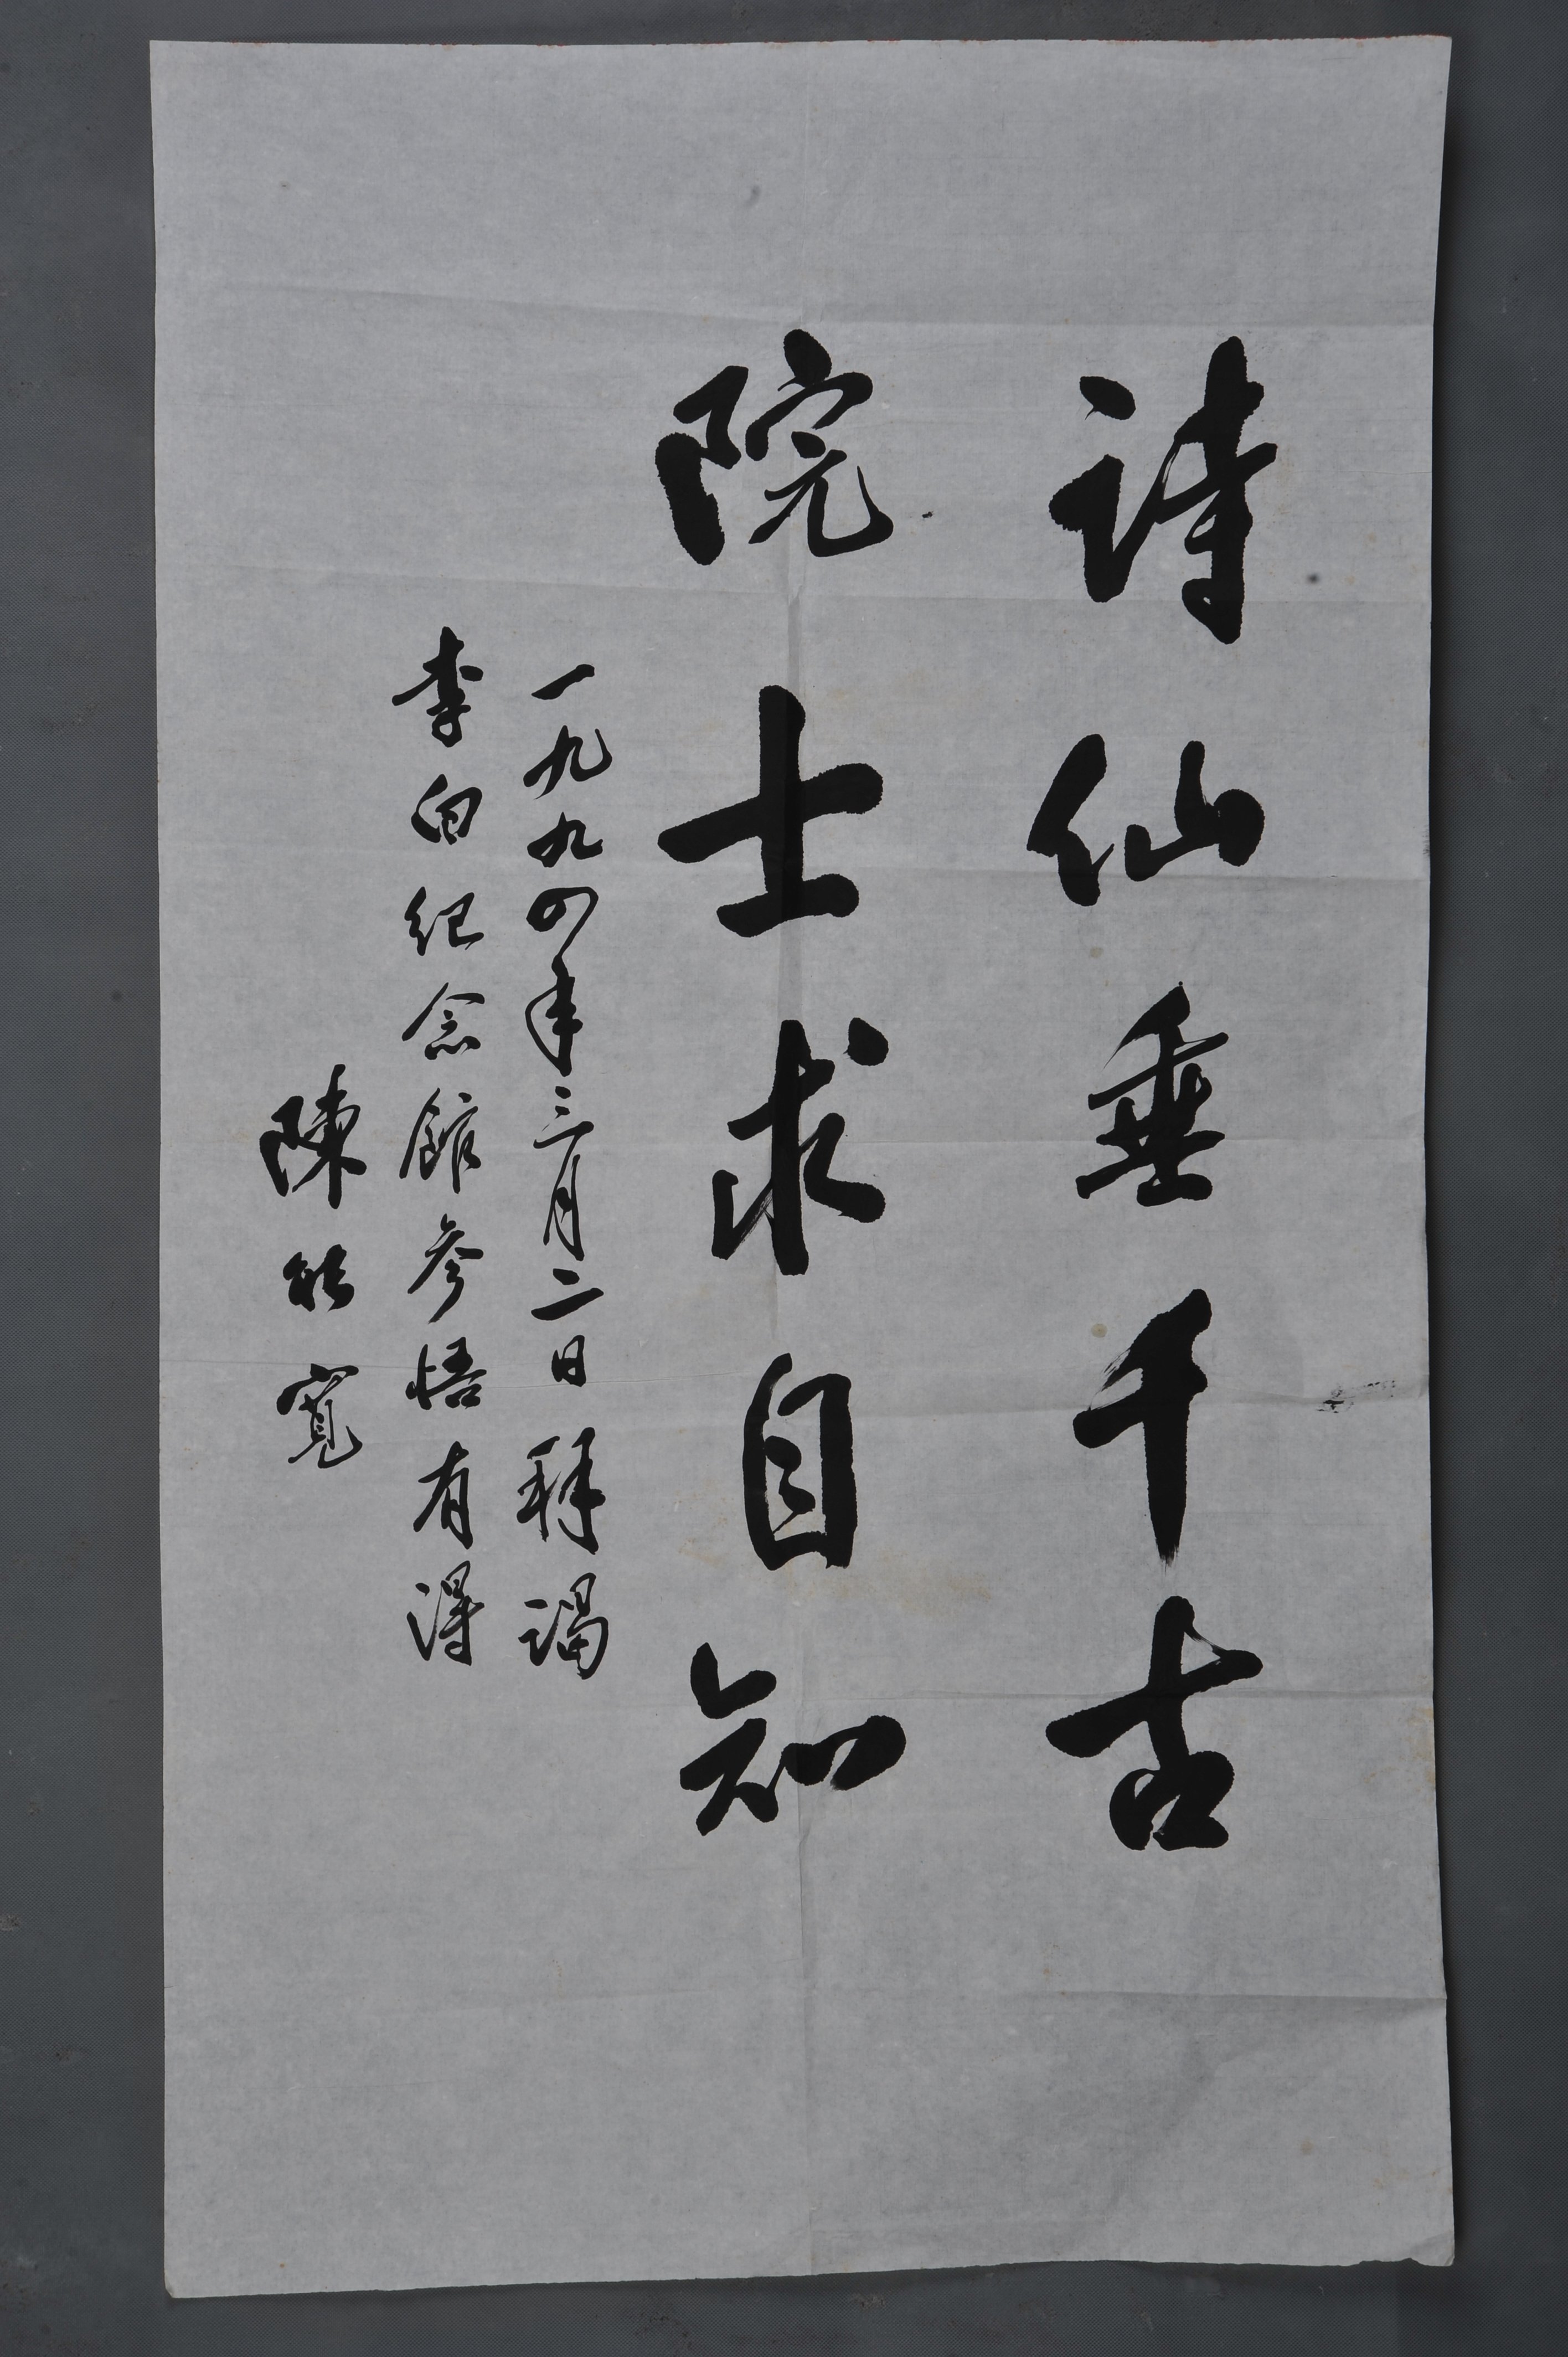 詩仙垂千古
院士求自知
一九九四年三月二日拜謁
李白纪念館参悟有得
陳能寬